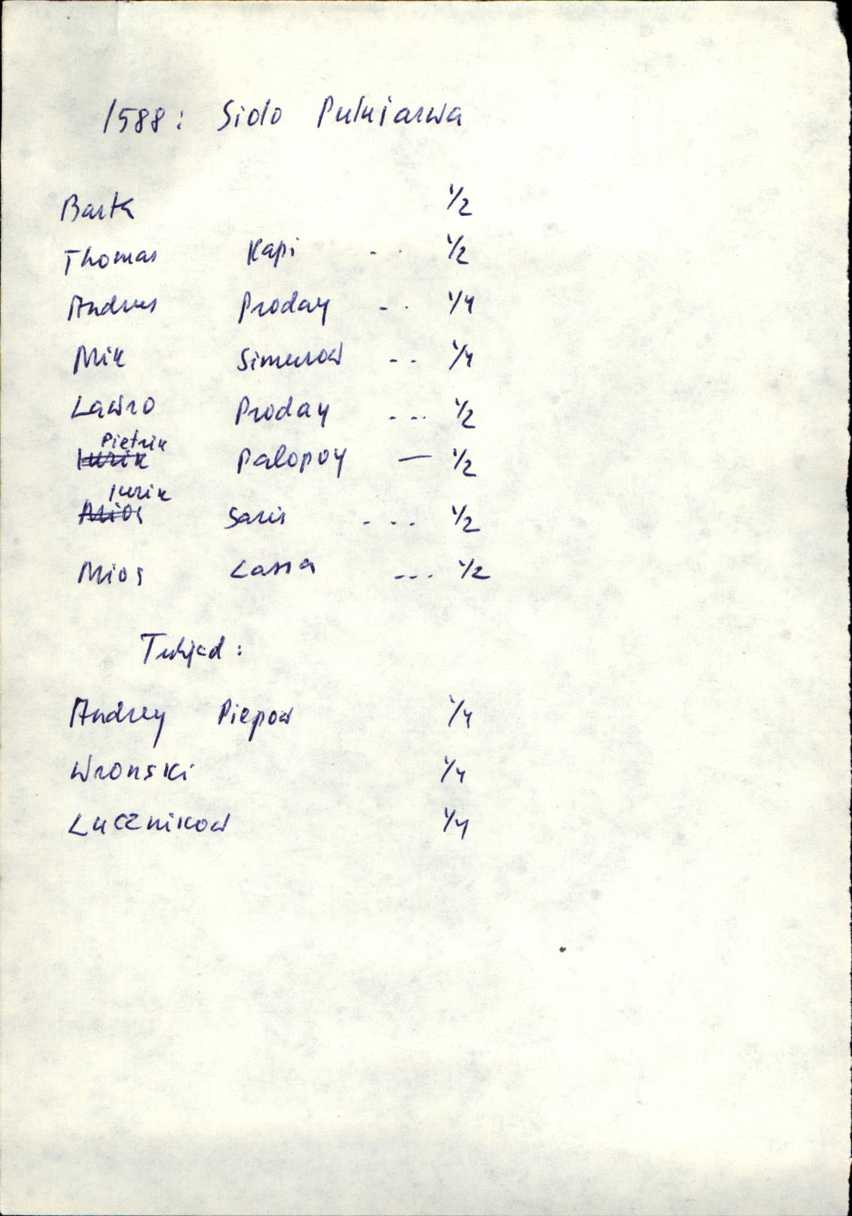 1588: Siolo Pulniarwa
Bartk 1/2
Thomas Kapi . . 1/2
Andrus Proday - . 1/4
Mik Simunow - - 1/4
Lawro Proday - - - 1/2
Pietrik
Iurik Palopoy — 1/2
Iurik
Mios Saris - - - 1/2
Mios Lassa - - - 1/2
Andrey Piepow 1/4
Wronski 1/4
Lucznikow 1/4